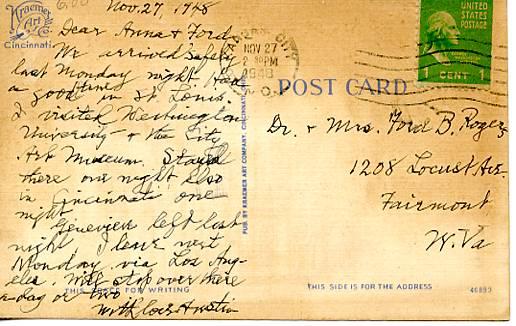 Kraemer
Art
Co.
Cincinnati
Nov. 27, 1948
Dear Anna & Ford
We arrived safely
last Monday night. Had
a good time in St. Louis
I visited Washington
University & the City
Art Museum. Stayed
there one night also
in Cincinnati one
night
Genevieve left last
night. I leave next
Monday via Los Ang-
eles. Will stop over there
a day or two
With love Austin
THIS SPACE FOR WRITING
PUB. BY KRAEMER ART COMPANY, CINCINNATI
CITY
NOV 27
2 PM
1948
UNITED
STATES
POSTAGE
1 CENT 1
POST CARD
Dr. & Mrs. Ford B. Rogers
1208 Locust Ave.
Fairmont
W. Va
THIS SIDE IS FOR THE ADDRESS